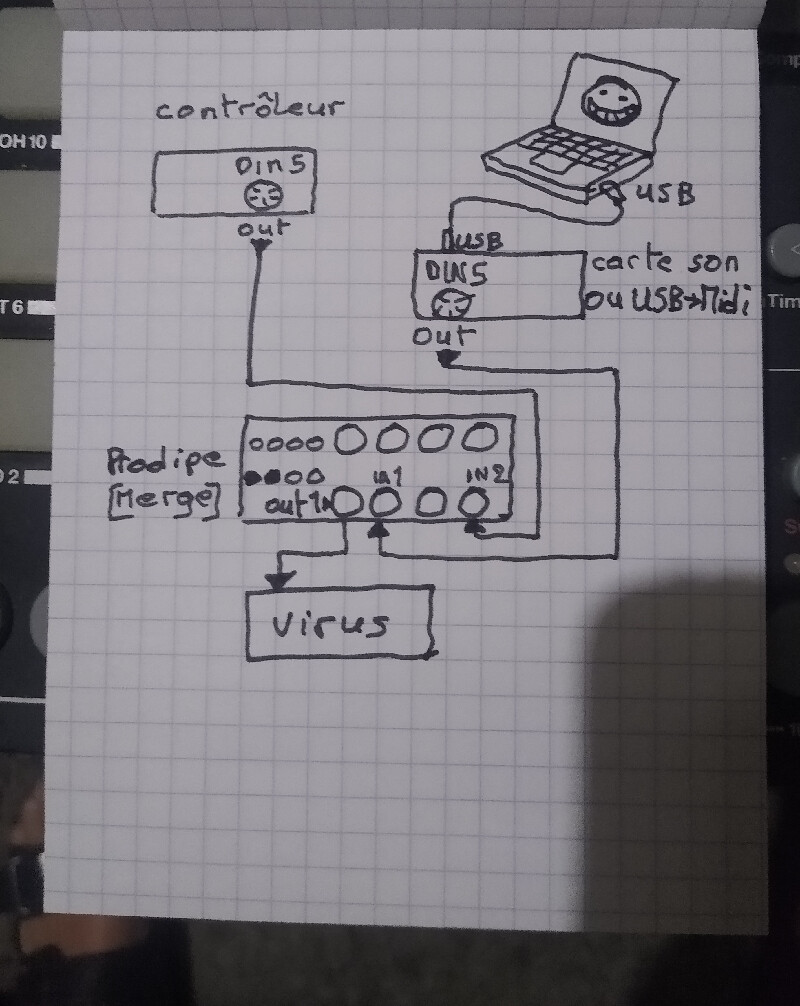 contrôleur
Din 5
out
USB
USB
DIN 5
carte son
ou USB→Midi
out
Prodipe
[Merge]
IN1
IN2
out 1
Virus
OH10
T 6
Tim